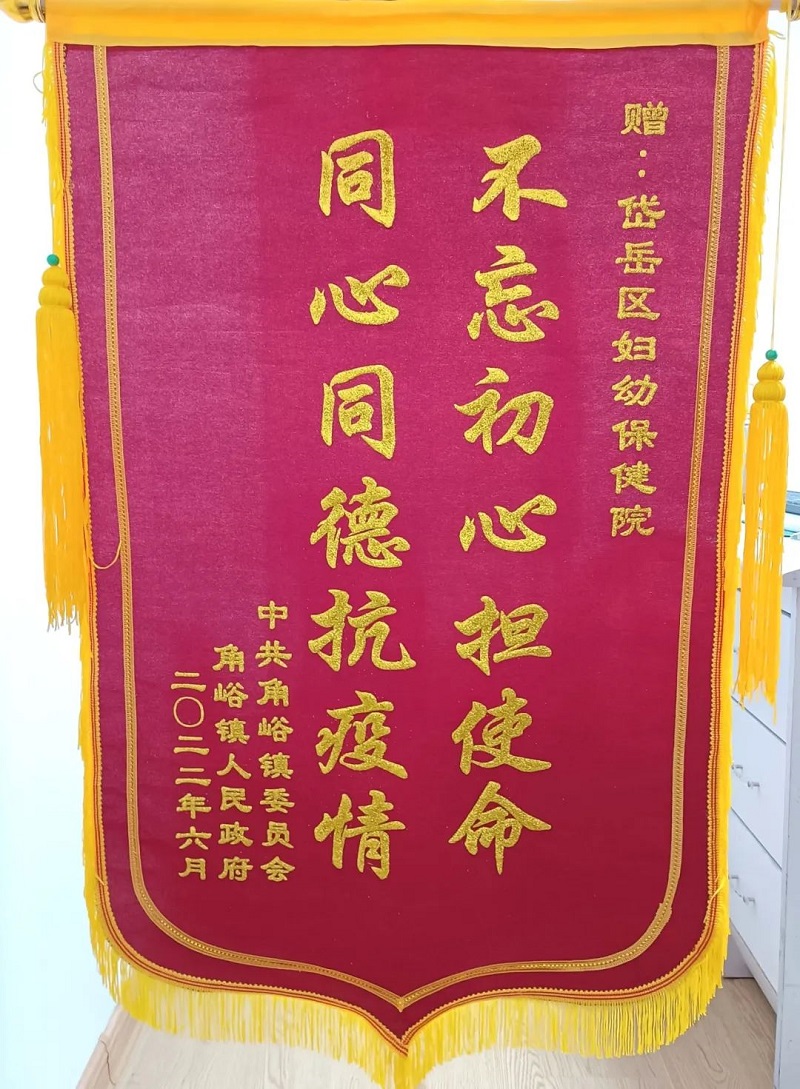 赠：岱岳区妇幼保健院
不忘初心担使命
同心同德抗疫情
中共角峪镇委员会
角峪镇人民政府
二〇二二年六月